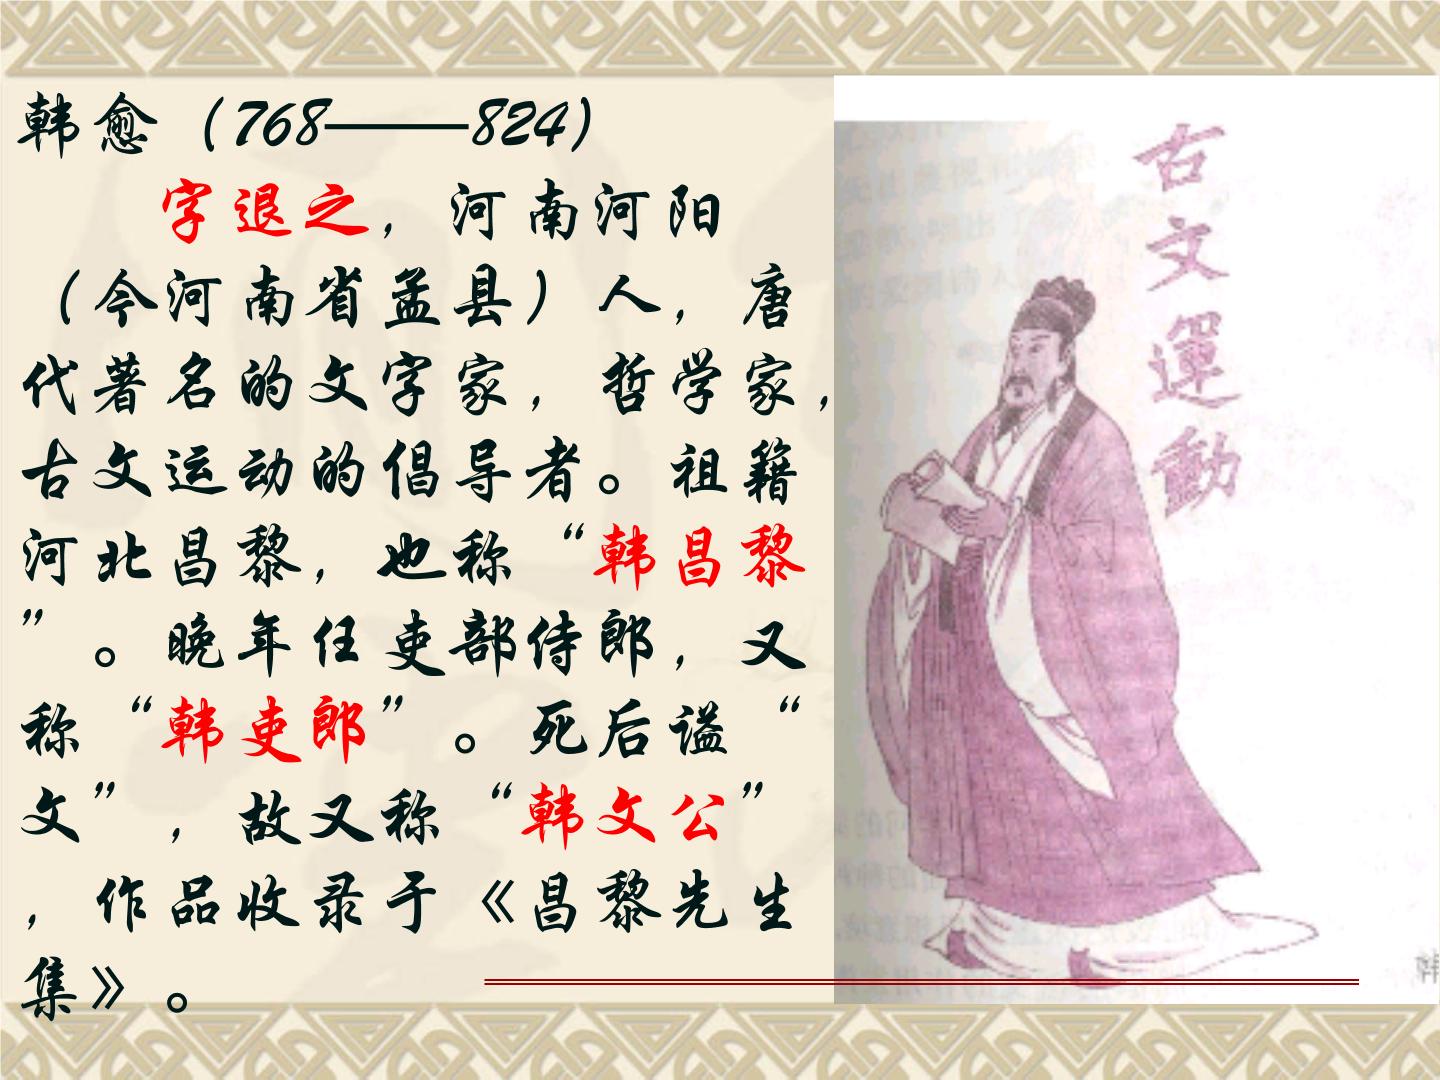 韩愈（768——824）
字退之，河南河阳
（今河南省孟县）人，唐
代著名的文字家，哲学家，
古文运动的倡导者。祖籍
河北昌黎，也称“韩昌黎
”。晚年任吏部侍郎，又
称“韩吏郎”。死后谥“
文”，故又称“韩文公”
，作品收录于《昌黎先生
集》。
古文運動